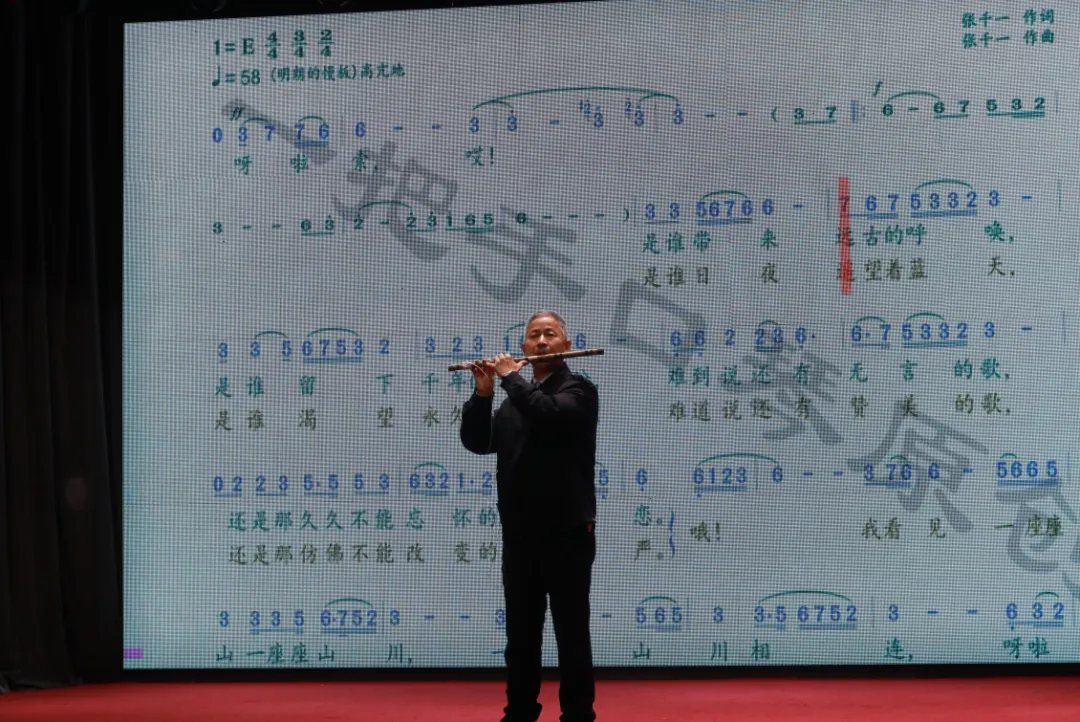 1=E 4/4 3/4 2/4
张千一 作词
张千一 作曲
♩=58 (明朗的慢板)高亢地
ff
f
0 3 7 7 6 6 - - 3 3 - 3 3 3 - - ( 3 7 6 - 6 7 5 3 2
呀 啦 索, 哎!
3 - - 6 3 2 - 2 3 1 6 5 6 - - - ) 3 3 5 6 7 6 6 - 7 6 7 5 3 3 2 3 -
是谁带 来 远古的呼 唤,
是谁日 夜 望着蓝 天,
3 3 5 6 7 5 3 2 3 2 3 6 6 6 2 2 3 6· 6·7 5 3 3 2 3 -
是谁 留 下 千年 难到说还有 无 言 的歌,
是谁 渴 望 永久 难道说还有 赞 美 的歌,
0 2 2 3 5·5 5 3 6 3 2 1·2 5 6 6 1 2 3 6 - - 3 7 6 6 - 5 6 6 5
还是那久久不能忘 怀的 恋。 哦! 我看 见 一座座
还是那仿佛不能改 变的 严。
3 3 3 5 6·7 5 2 3 - - 3 5 6 5 3 3·5 6 7 5 2 3 - - 6 3 2
山 一座座山 川, 一 山 川相 连, 呀啦
一把手口琴原创